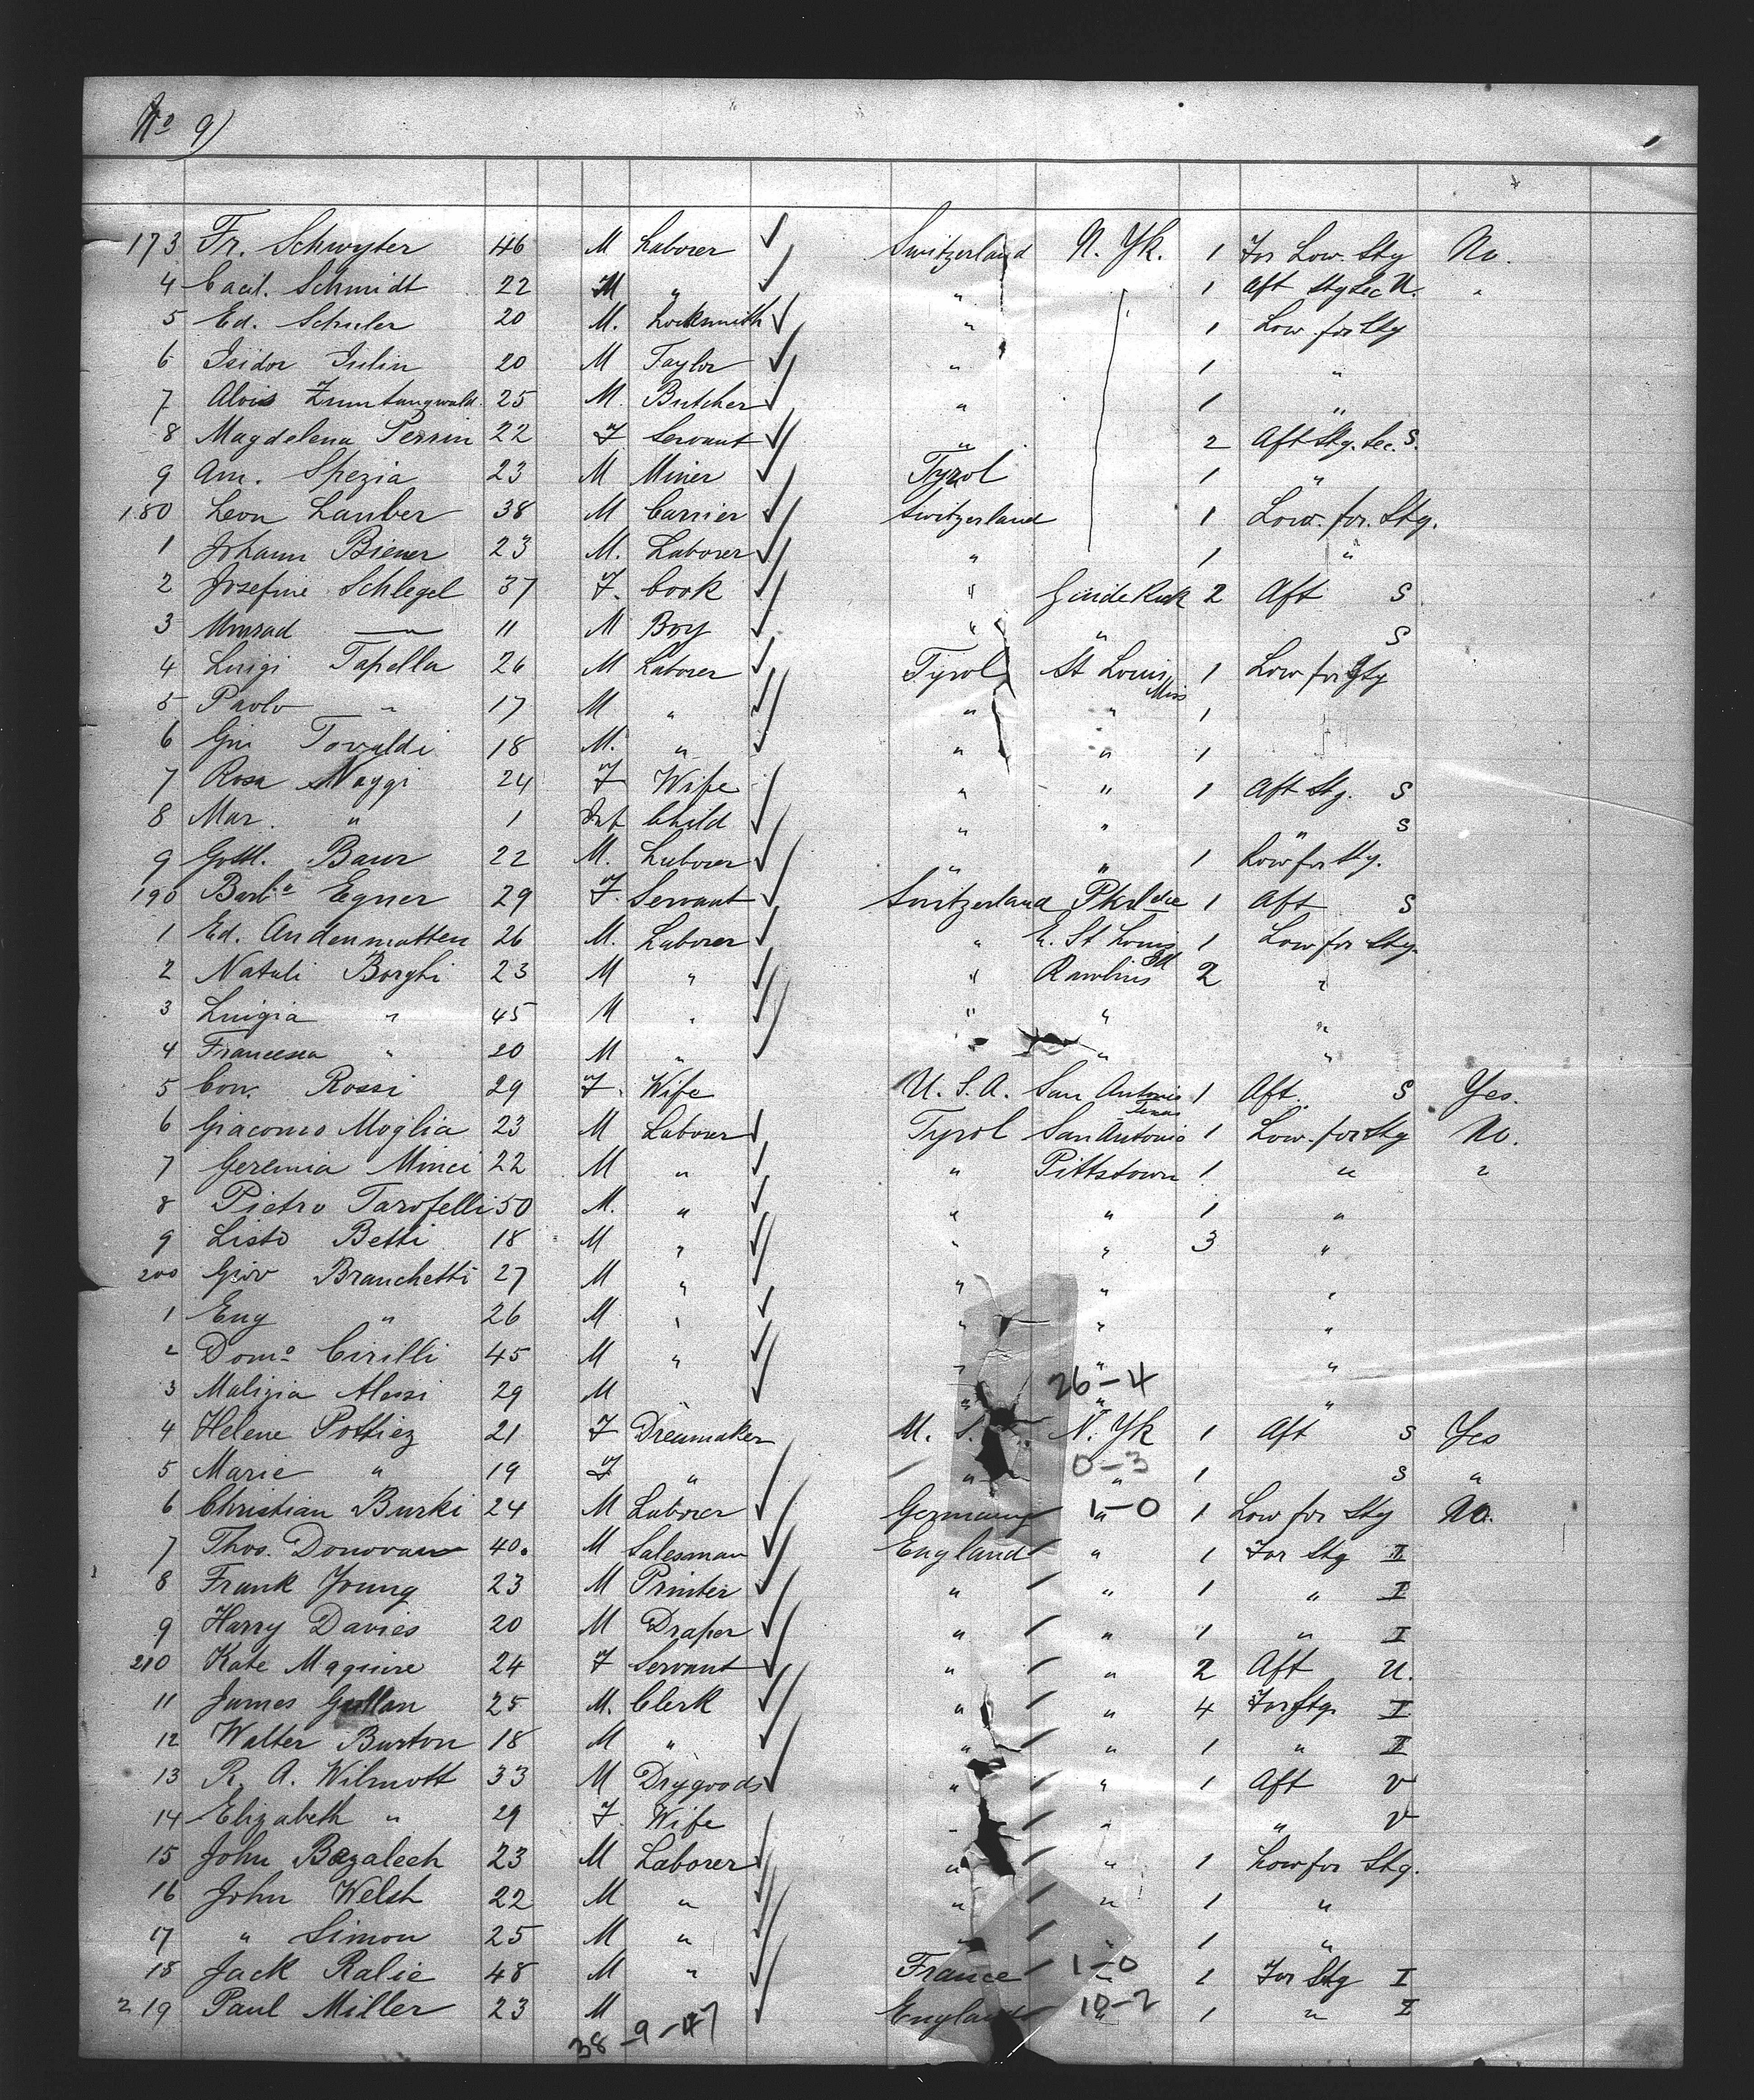 No 9)
173 Fr. Schwyter 46 M Laborer Switzerland N. Yk. 1 For Low. Stg No.
4 Cacil. Schmidt 22 M " " 1 Aft Stg Sec U. "
5 Ed. Schuler 20 M. Locksmith " 1 Low for Stg
6 Isidor Iulin 20 M Taylor " 1 "
7 Alois Zumtaugwald. 25 M. Butcher " 1 "
8 Magdelena Perrin 22 F Servant " 2 Aft Stg. Sec. S.
9 Am. Spezia 23 M Miner Tyrol 1 "
180 Leon Lauber 38 M Carrier Switzerland 1 Low. for. Stg.
1 Johann Biener 23 M. Laborer " 1 "
2 Josefine Schlegel 37 F. Cook " 2 Aft S
3 — 11 M Boy " " S
4 Luigi Tapella 26 M Laborer Tyrol St Louis Miss 1 Low for Stg
5 Paolo " 17 M " " " 1
6 Gui Tovaldi 18 M. " " " 1
7 Rosa Maggi 24 F Wife " " 1 Aft Stg. S
8 Mar. " 1 Inf Child " " " S
9 Gottl. Baur 22 M. Laborer " " 1 Low for Stg.
190 Barba Egner 29 F. Servant Switzerland 1 Aft S
1 Ed. Andenmatten 26 M. Laborer " E. St Louis Ill 1 Low for Stg.
2 Natali Borghi 23 M " " Rawlins 2 "
3 Luigia " 45 M " " " "
4 Francesca " 20 M " " " "
5 Con. Rossi 29 F. Wife U. S. A. San Antonio Texas 1 Aft. S Yes.
6 Giacomo Moglia 23 M Laborer Tyrol San Antonio 1 Low. for Stg No.
7 Geremia Minci 22 M " " Pittstown 1 " "
8 Pietro Tarofelli 50 M. " " " 1 "
9 Listo Betti 18 M " " " 3 "
200 Giov Branchetti 27 M " " " "
1 Eug " 26 M " " " "
2 Domo Cirilli 45 M " " " "
3 Malizia Alessi 29 M " " 26-4 "
4 Helene Pottiez 21 F Dressmaker N. Yk 1 Aft S Yes
5 Marie " 19 F " " 0-3 " 1 S "
6 Christian Burki 24 M Laborer Germany 1-0 " 1 Low for Stg No.
7 Thos. Donovan 40. M Salesman England " 1 For Stg II
8 Frank Young 23 M Printer " " 1 " I
9 Harry Davies 20 M Draper " " 1 " I
210 Kate Maguire 24 F Servant " " 2 Aft U.
11 James Gullan 25 M. Clerk " " 4 For Stg. I
12 Walter Burton 18 M " " " 1 " II
13 R. A. Wilmott 33 M Drygoods " " 1 Aft V
14 Elizabeth " 29 F. Wife " " " V
15 John Bazalech 23 M Laborer " " 1 Low for Stg.
16 John Welsh 22 M " " " 1 "
17 " Simon 25 M " " " 1 "
18 Jack Ralie 48 M " France 1-0 " 1 For Stg I
219 Paul Miller 23 M England 10-2 " 1 " I
38-9-47